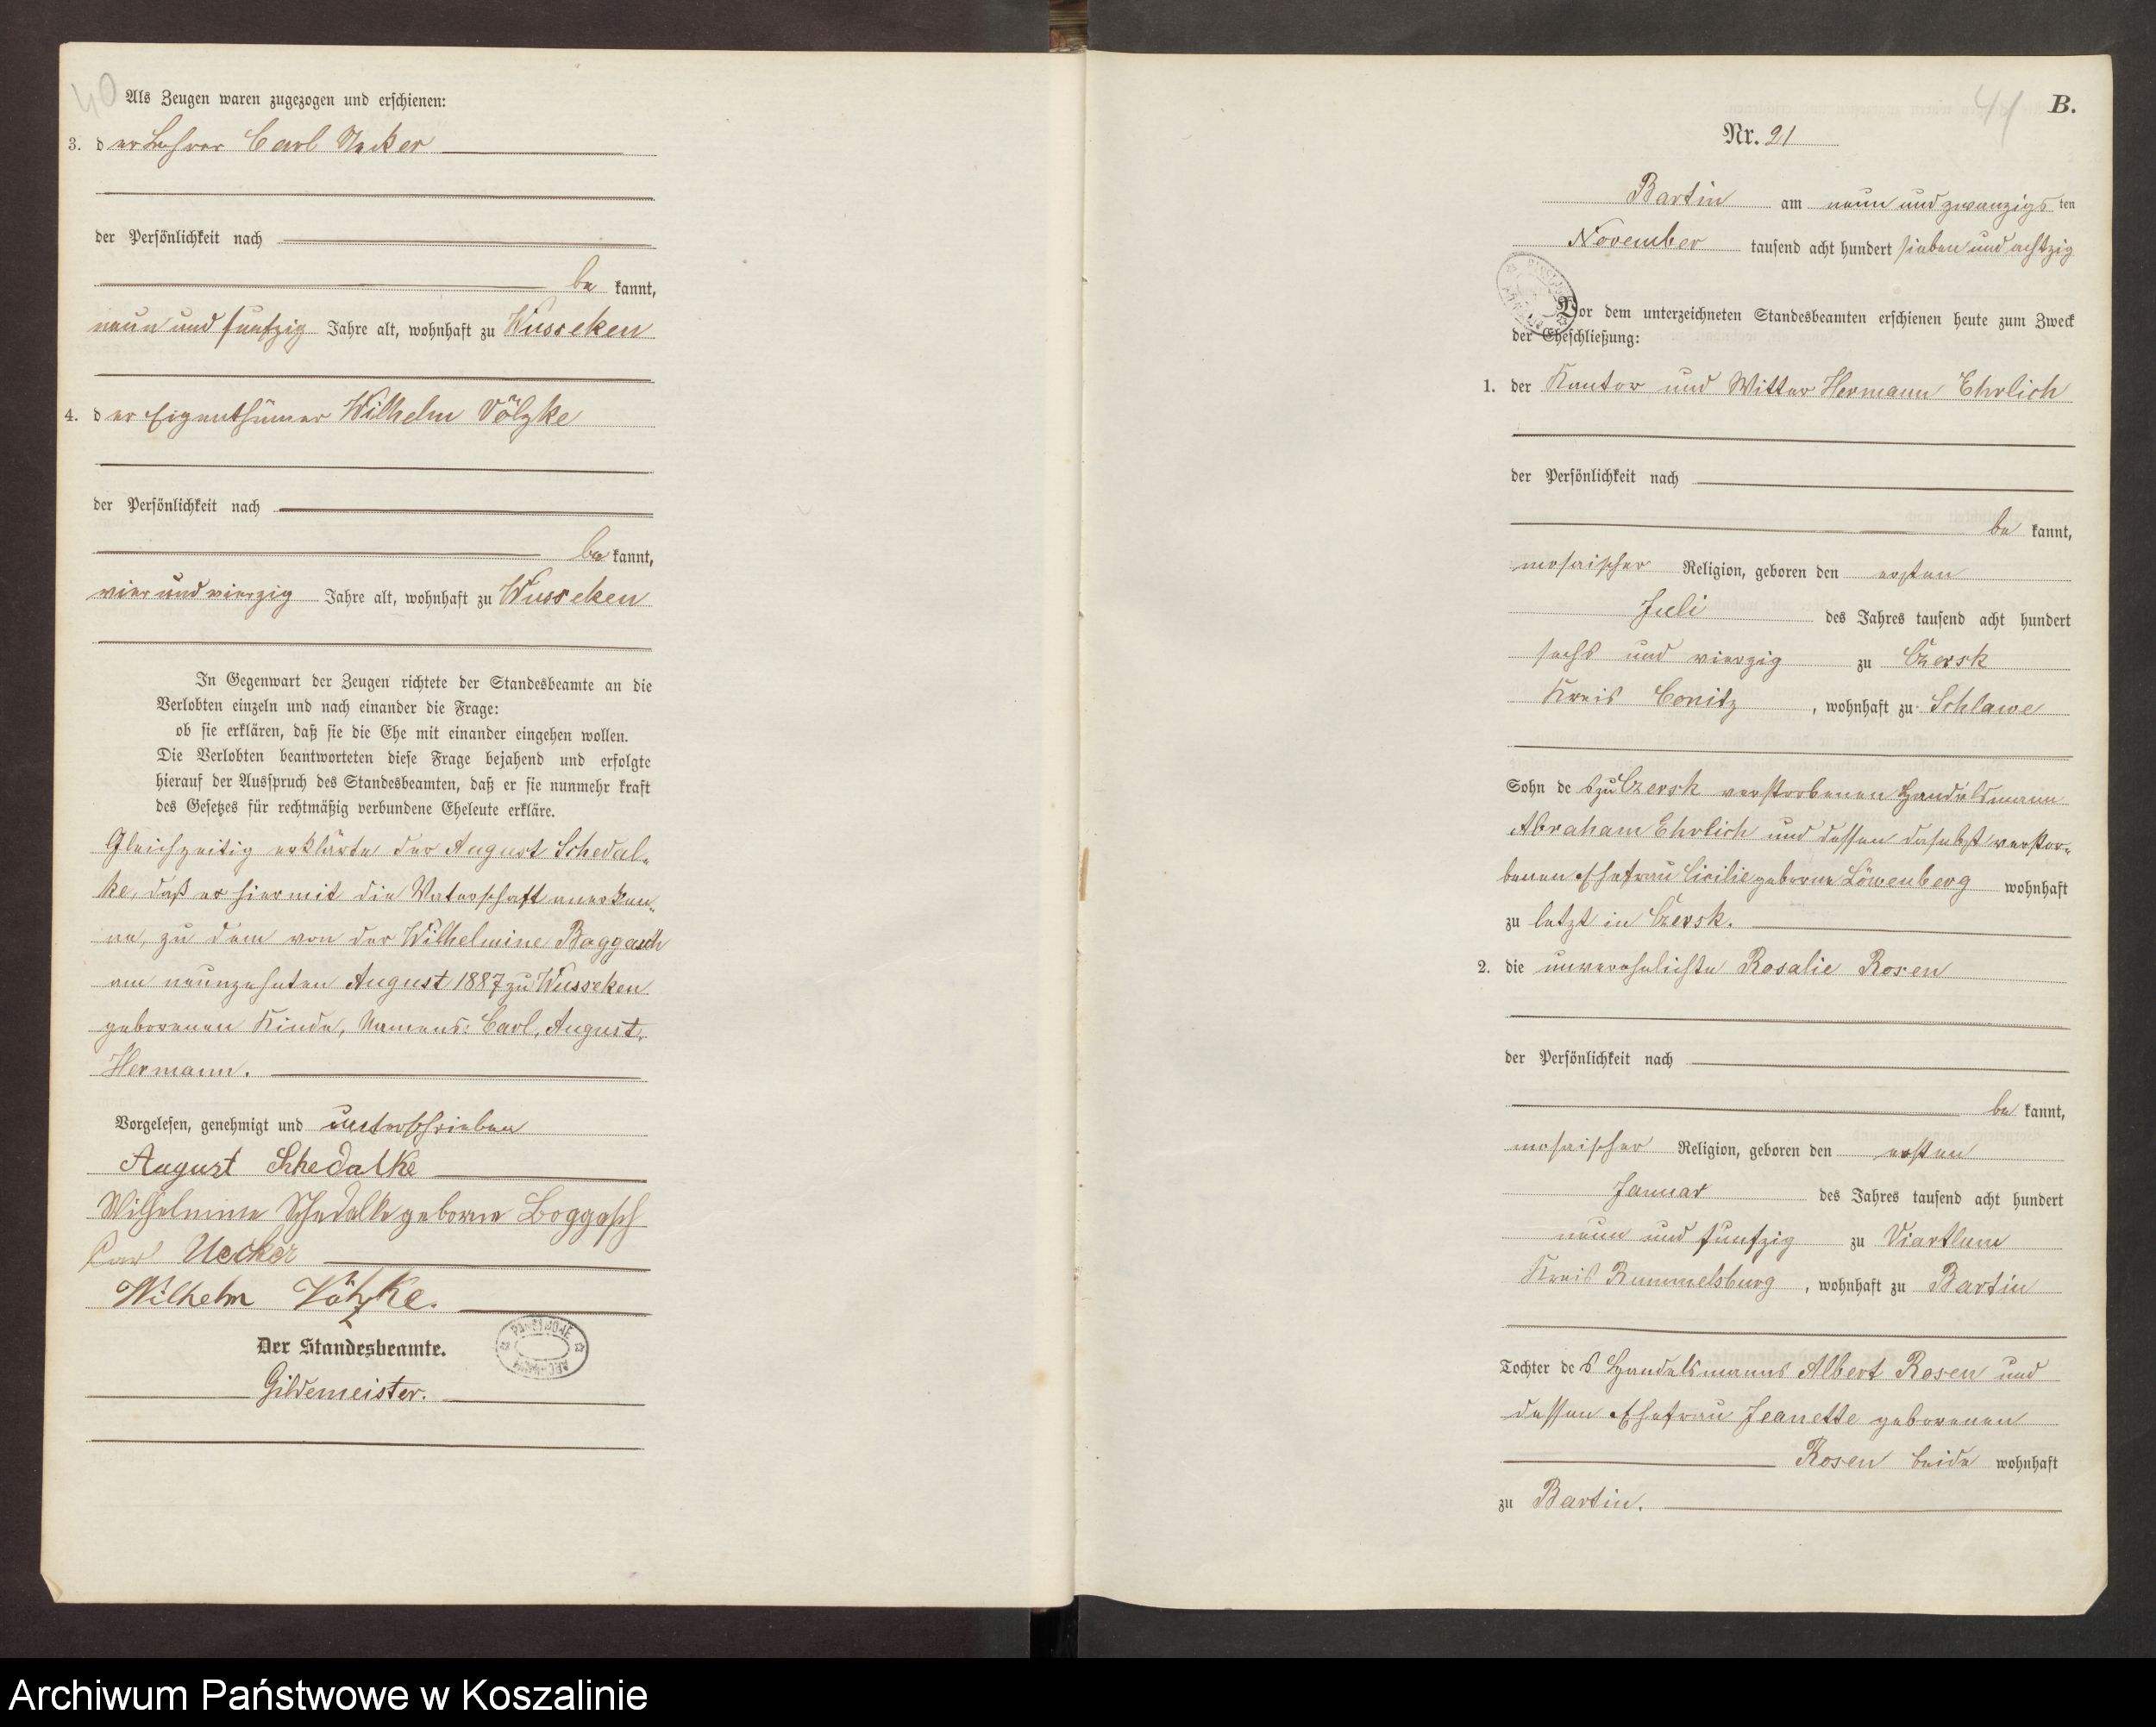 40
Als Zeugen waren zugezogen und erschienen:
3. der Lehrer Carl Uecker
der Persönlichkeit nach
be kannt,
neun und funfzig Jahre alt, wohnhaft zu Wusseken
4. der Eigenthümer Wilhelm Völzke
der Persönlichkeit nach
be kannt,
vier und vierzig Jahre alt, wohnhaft zu Wusseken
In Gegenwart der Zeugen richtete der Standesbeamte an die
Verlobten einzeln und nach einander die Frage:
ob sie erklären, daß sie die Ehe mit einander eingehen wollen.
Die Verlobten beantworteten diese Frage bejahend und erfolgte
hierauf der Ausspruch des Standesbeamten, daß er sie nunmehr kraft
des Gesetzes für rechtmäßig verbundene Eheleute erkläre.
Gleichzeitig erklärte der August Schedal-
ke, daß er hiermit die Vaterschaft anerken-
ne, zu dem von der Wilhelmine Baggasch
am neunzehnten August 1887 zu Wusseken
geborenen Kinde, Namens: Carl, August,
Hermann.
Vorgelesen, genehmigt und unterschrieben
August Schedalke
Wilhelmine Schedalke geborne Boggasch
Carl Uecker
Wilhelm Völzke.
Der Standesbeamte.
Gildemeister.
41
B.
Nr. 21
Bartin am neun und zwanzigsten
November tausend acht hundert sieben und achtzig
Vor dem unterzeichneten Standesbeamten erschienen heute zum Zweck
der Eheschließung:
1. der Kantor und Witter Hermann Ehrlich
der Persönlichkeit nach
be kannt,
mosaischer Religion, geboren den ersten
Juli des Jahres tausend acht hundert
sechs und vierzig zu Czersk
Kreis Conitz, wohnhaft zu Schlawe
Sohn des zu Czersk verstorbenen Handelsmann
Abraham Ehrlich und dessen daselbst verstor-
benen Ehefrau Cicilie geborne Löwenberg wohnhaft
zu letzt in Czersk.
2. die unverehelichte Rosalie Rosen
der Persönlichkeit nach
be kannt,
mosaischer Religion, geboren den ersten
Januar des Jahres tausend acht hundert
neun und funfzig zu Viartlum
Kreis Rummelsburg, wohnhaft zu Bartin
Tochter des Handelsmanns Albert Rosen und
dessen Ehefrau Jeanette geborenen
Rosen beide wohnhaft
zu Bartin.
Archiwum Państwowe w Koszalinie